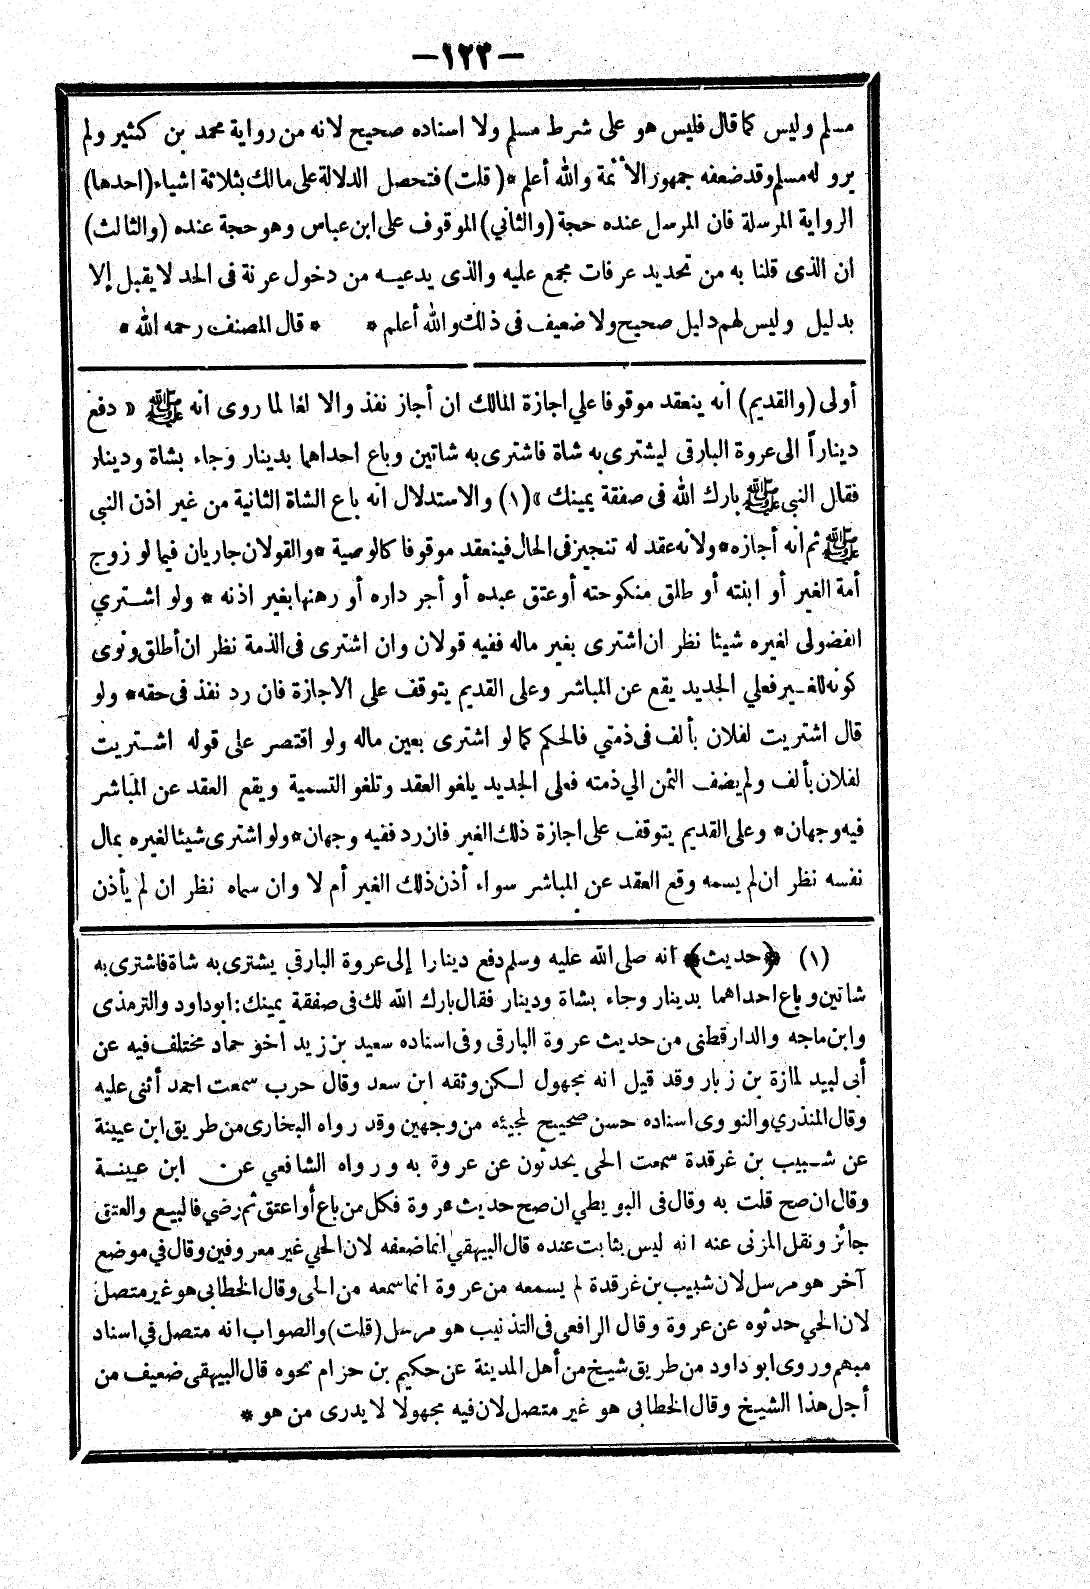 -١٢٣-
مسلم وليس كما قال فليس هو على شرط مسلم ولا اسناده صحيح لانه من رواية محمد بن كثير ولم
يرو له مسلم وقد ضعفه جمهور الأئمة والله أعلم * (قلت) فتحصل الدلالة على مالك بثلاثة اشياء (احدها)
الرواية المرسلة فان المرسل عنده حجة (والثاني) الموقوف على ابن عباس وهو حجة عنده (والثالث)
ان الذى قلنا به من تحديد عرفات مجمع عليه والذى يدعيه من دخول عرنة فى الحد لا يقبل إلا
بدليل وليس لهم دليل صحيح ولا ضعيف فى ذلك والله أعلم * * قال المصنف رحمه الله *
أولى (والقديم) انه ينعقد موقوفا علي اجازة المالك ان أجاز نفذ والا لغا لما روى انه ﷺ « دفع
ديناراً الى عروة البارقى ليشترى به شاة فاشترى به شاتين وباع احداهما بدينار وجاء بشاة ودينار
فقال النبي ﷺ بارك الله فى صفقة يمينك » (١) والاستدلال انه باع الشاة الثانية من غير اذن النبى
ﷺ ثم انه أجازه * ولانه عقد له تنجيز فى الحال فينعقد موقوفا كالوصية * والقولان جاريان فيما لو زوج
أمة الغير أو ابنته أو طلق منكوحته أو عتق عبده أو أجر داره أو رهنها بغير اذنه * ولو اشترى
الفضولى لغيره شيئا نظر ان اشترى بغير ماله ففيه قولان وان اشترى فى الذمة نظر ان أطلق ونوى
كونه للغير فعلي الجديد يقع عن المباشر وعلى القديم يتوقف على الاجازة فان رد نفذ فى حقه * ولو
قال اشتريت لفلان بألف فى ذمتي فالحكم كما لو اشترى بعين ماله ولو اقتصر على قوله اشتريت
لفلان بألف ولم يضف الثمن الي ذمته فعلى الجديد يلغو العقد وتلغو التسمية ويقع العقد عن المباشر
فيه وجهان * وعلى القديم يتوقف على اجازة ذلك الغير فان رد ففيه وجهان * ولو اشترى شيئا لغيره بمال
نفسه نظر ان لم يسمه وقع العقد عن المباشر سواء أذن ذلك الغير أم لا وان سماه نظر ان لم يأذن
(١) ﴿حديث﴾ انه صلى الله عليه وسلم دفع دينارا إلى عروة البارقي يشترى به شاة فاشترى به
شاتين وباع احداهما بدينار وجاء بشاة ودينار فقال بارك الله لك فى صفقة يمينك : ابو داود والترمذى
وابن ماجه والدارقطنى من حديث عروة البارقى وفى اسناده سعيد بن زيد اخو حماد مختلف فيه عن
أبى لبيد لمازة بن زبار وقد قيل انه مجهول لكن وثقه ابن سعد وقال حرب سمعت احمد أثنى عليه
وقال المنذري والنووى اسناده حسن صحيح لمجيئه من وجهين وقد رواه البخارى من طريق ابن عيينة
عن شبيب بن غرقدة سمعت الحى يحدثون عن عروة به ورواه الشافعي عن ابن عيينة
وقال ان صح قلت به وقال فى البويطي ان صح حديث عروة فكل من باع أو اعتق ثم رضي فالبيع والعتق
جائز ونقل المزنى عنه انه ليس بثابت عنده قال البيهقى انما ضعفه لان الحى غير معروفين وقال في موضع
آخر هو مرسل لان شبيب بن غرقدة لم يسمعه من عروة انما سمعه من الحى وقال الخطابى هو غير متصل
لان الحي حدثوه عن عروة وقال الرافعى فى التذنيب هو مرسل (قلت) والصواب انه متصل في اسناد
مبهم وروى ابو داود من طريق شيخ من أهل المدينة عن حكيم بن حزام نحوه قال البيهقى ضعيف من
أجل هذا الشيخ وقال الخطابى هو غير متصل لان فيه مجهولا لا يدرى من هو *